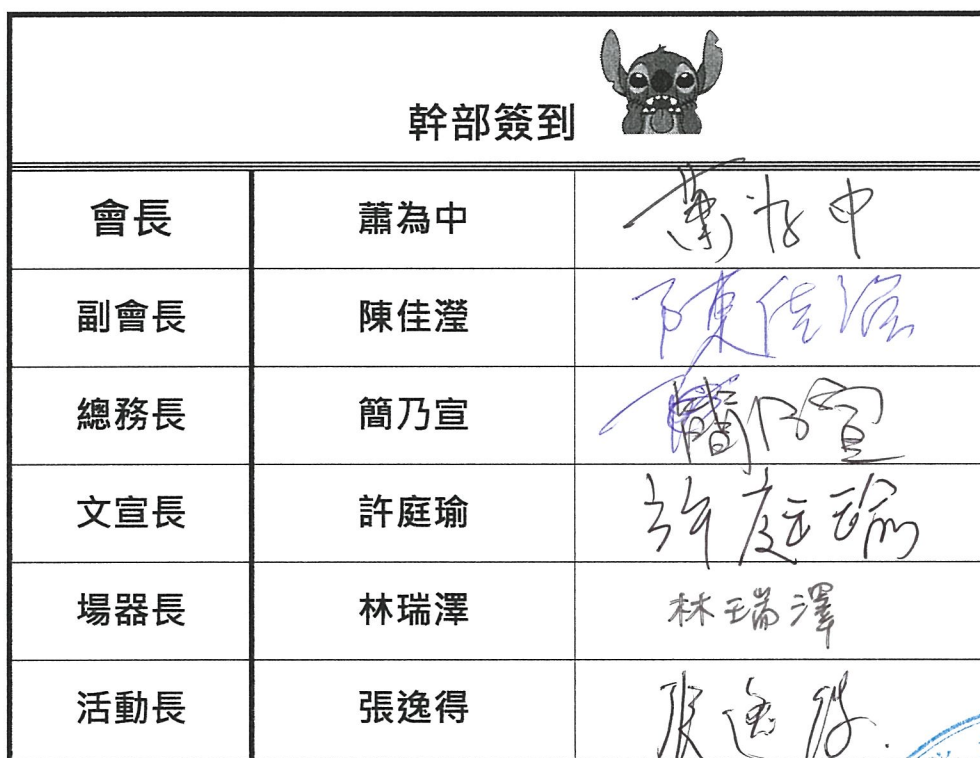 幹部簽到
會長 蕭為中 蕭为中
副會長 陳佳瀅 陳佳瀅
總務長 簡乃宣 簡乃宣
文宣長 許庭瑜 許庭瑜
場器長 林瑞澤 林瑞澤
活動長 張逸得 張逸得